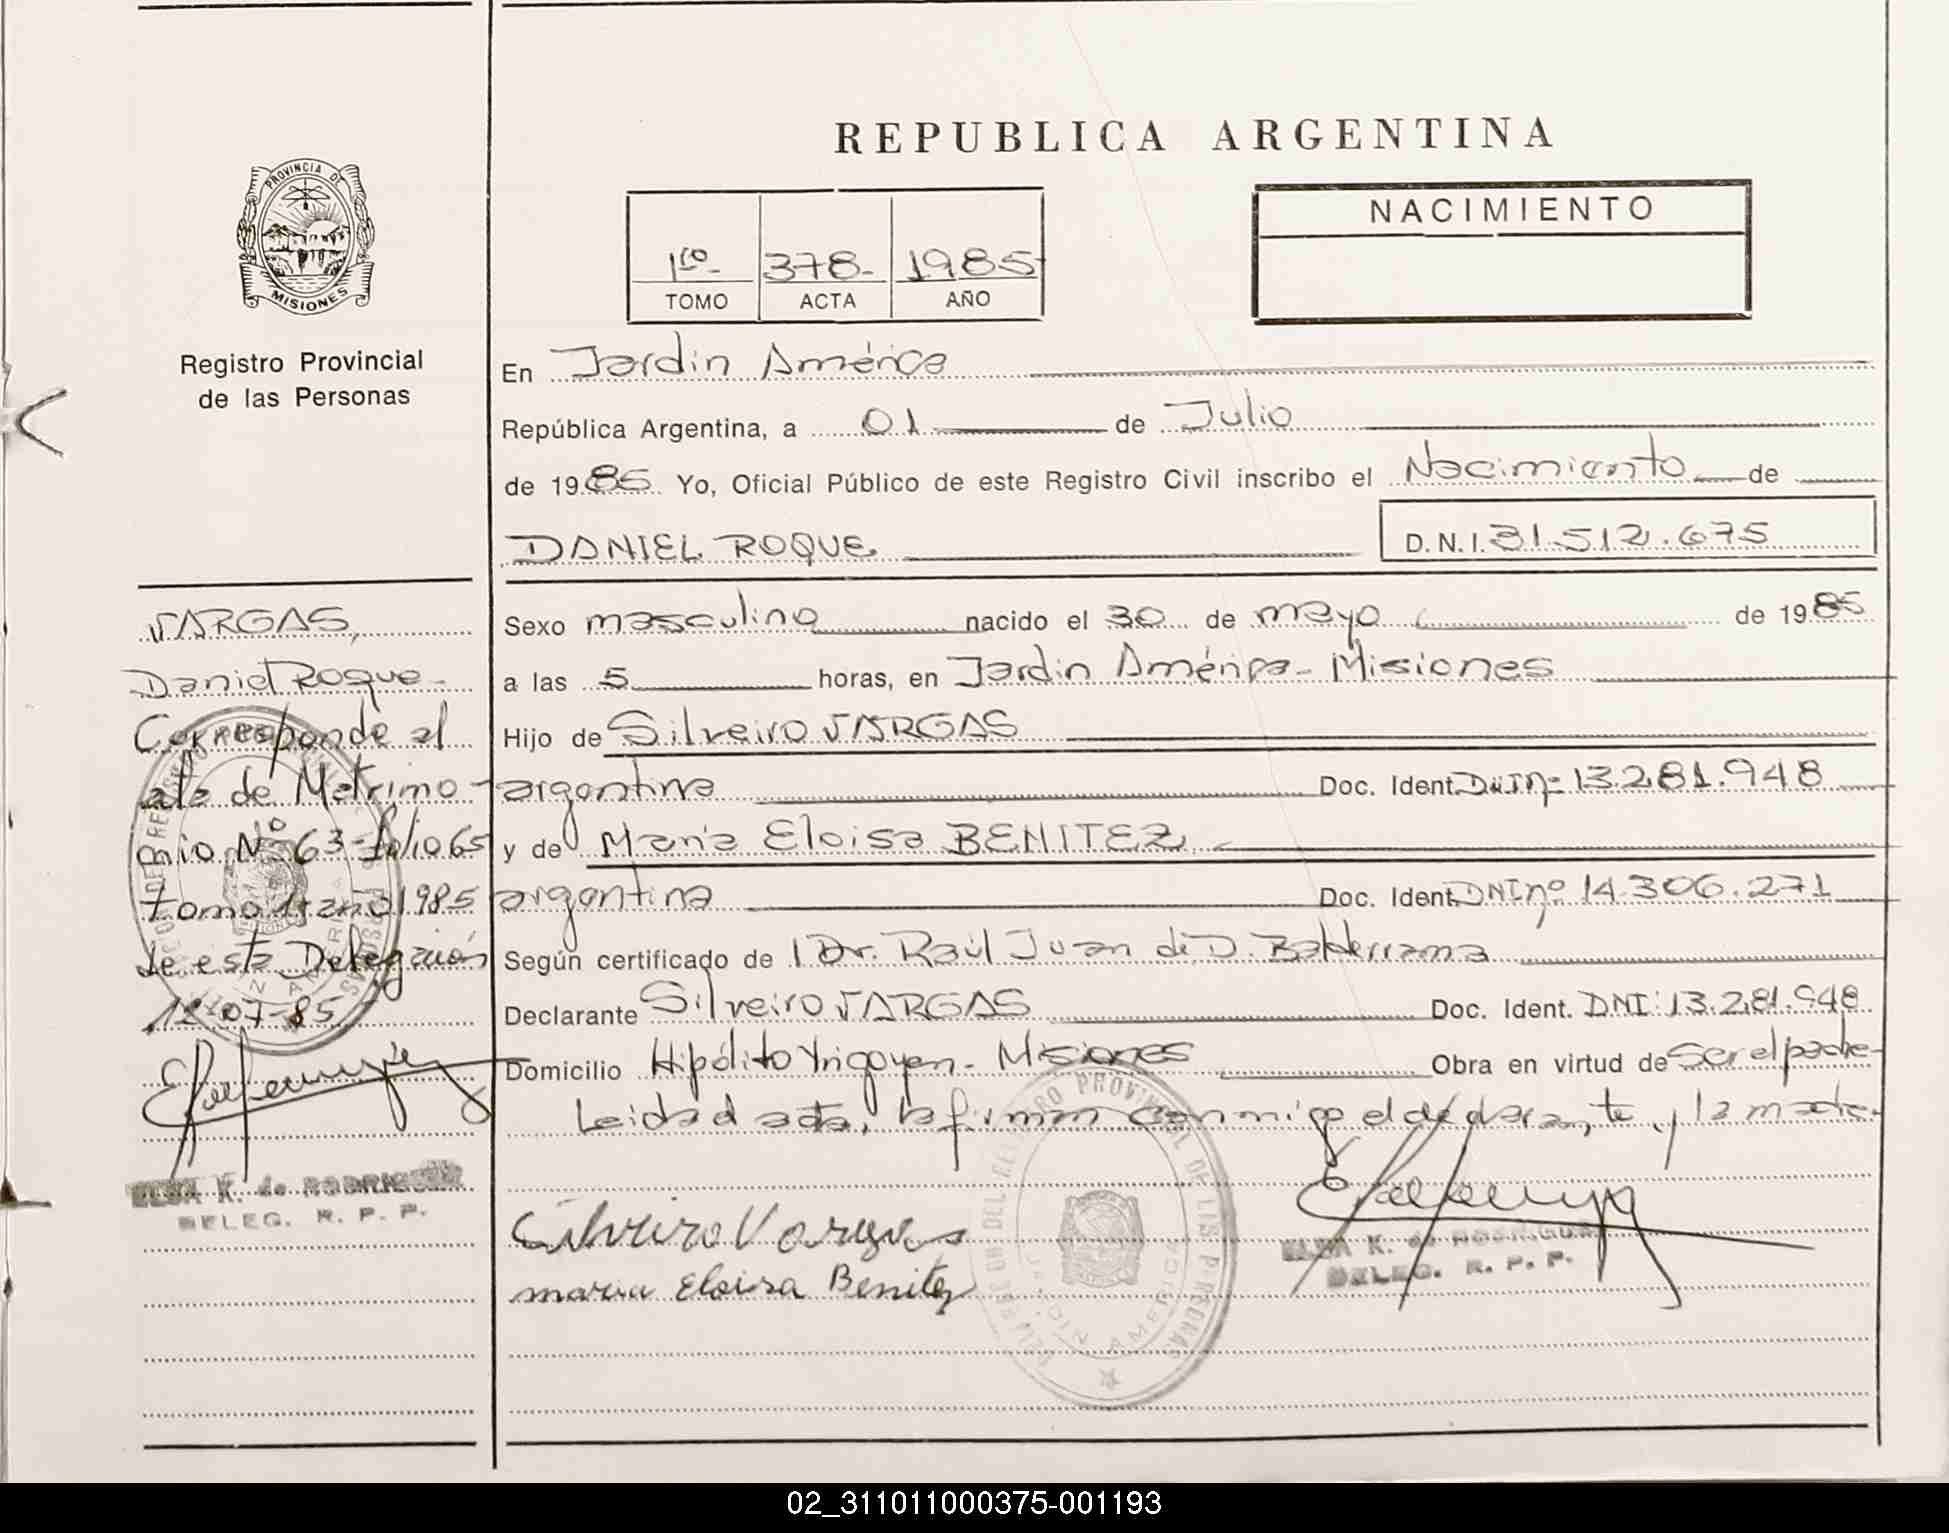 REPUBLICA ARGENTINA
PROVINCIA DE
MISIONES
Registro Provincial
de las Personas
1ro- 378- 1985
TOMO ACTA AÑO
NACIMIENTO
En Jardin América
República Argentina, a 01 de Julio
de 1985 Yo, Oficial Público de este Registro Civil inscribo el Nacimiento de
DANIEL ROQUE D.N.I. 31.512.675
Sexo masculino nacido el 30 de mayo de 1985
a las 5 horas, en Jardin América- Misiones
Hijo de Silveiro VARGAS
argentina Doc. Ident. DNI nº 13.281.948
y de Maria Eloisa BENITEZ
argentina Doc. Ident. DNI nº 14.306.271
Según certificado de Dr. Raúl Juan de D. Balderrama
Declarante Silveiro VARGAS Doc. Ident. DNI: 13.281.948
Domicilio Hipólito Yrigoyen- Misiones Obra en virtud de ser el padre-
Leida el acta, la firman conmigo el declarante, y la madre-
Silveiro Vargas
maria Eloisa Benitez
ELSA K. de RODRIGUEZ
DELEG. R. P. P.
VARGAS,
Daniel Roque-
Corresponde al
acta de Matrimo-
nio Nº 63-folio 65
tomo 1º año 1985
de esta Delegación
12-07-85
ELSA K. de RODRIGUEZ
DELEG. R. P. P.
02_311011000375-001193